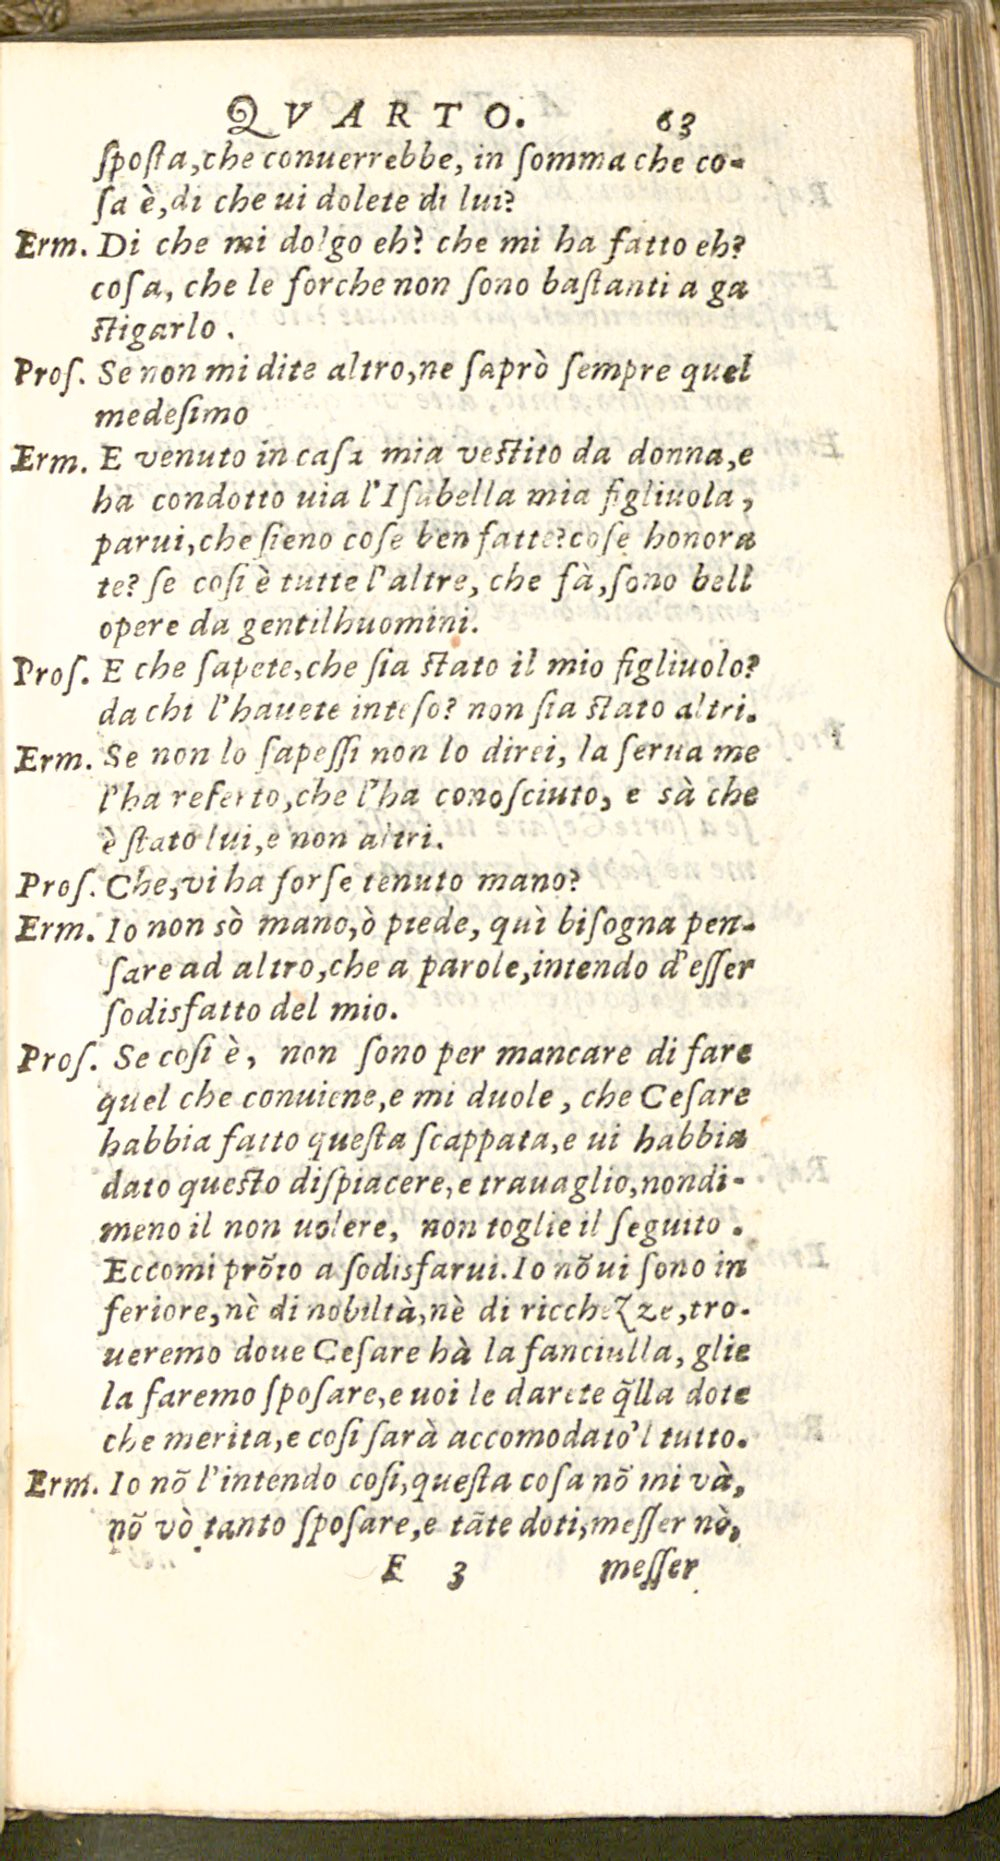 QVARTO. 63
ſpoſta, che conuerrebbe, in ſomma che co-
ſa è, di che ui dolete di lui?
Erm. Di che mi dolgo eh? che mi ha fatto eh?
coſa, che le forche non ſono baſtanti a ga
ſtigarlo.
Proſ. Se non mi dite altro, ne ſaprò ſempre quel
medeſimo
Erm. E venuto in caſa mia veſtito da donna, e
ha condotto uia l'Iſabella mia figliuola,
parui, che ſieno coſe ben fatte? coſe honora
te? ſe coſi è tutte l'altre, che fà, ſono bell
opere da gentilhuomini.
Proſ. E che ſapete, che ſia ſtato il mio figliuolo?
da chi l'hauete inteſo? non ſia ſtato altri.
Erm. Se non lo ſapeſſi non lo direi, la ſerua me
l'ha referto, che l'ha conoſciuto, e sà che
è ſtato lui, e non altri.
Proſ. Che, vi ha forſe tenuto mano?
Erm. Io non sò mano, ò piede, quì biſogna pen-
ſare ad altro, che a parole, intendo d'eſſer
ſodisfatto del mio.
Proſ. Se coſi è, non ſono per mancare di fare
quel che conuiene, e mi duole, che Ceſare
habbia fatto queſta ſcappata, e ui habbia
dato queſto diſpiacere, e trauaglio, nondi-
meno il non uolere, non toglie il ſeguito.
Eccomi prõto a ſodisfarui. Io nõ ui ſono in
feriore, nè di nobiltà, nè di ricchezze, tro-
ueremo doue Ceſare hà la fanciulla, glie
la faremo ſpoſare, e uoi le darete q̃lla dote
che merita, e coſi ſarà accomodato'l tutto.
Erm. Io nõ l'intendo coſi, queſta coſa nõ mi và,
nõ vò tanto ſpoſare, e tãte doti, meſſer nò,
E 3 meſſer